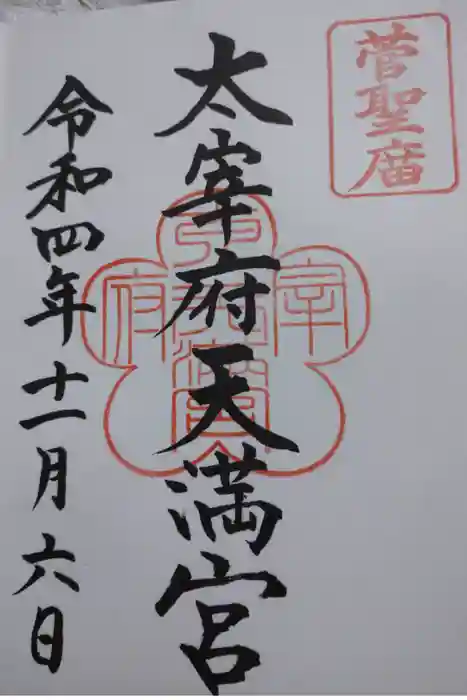 菅聖庿
太宰府天満宮
令和四年十一月六日